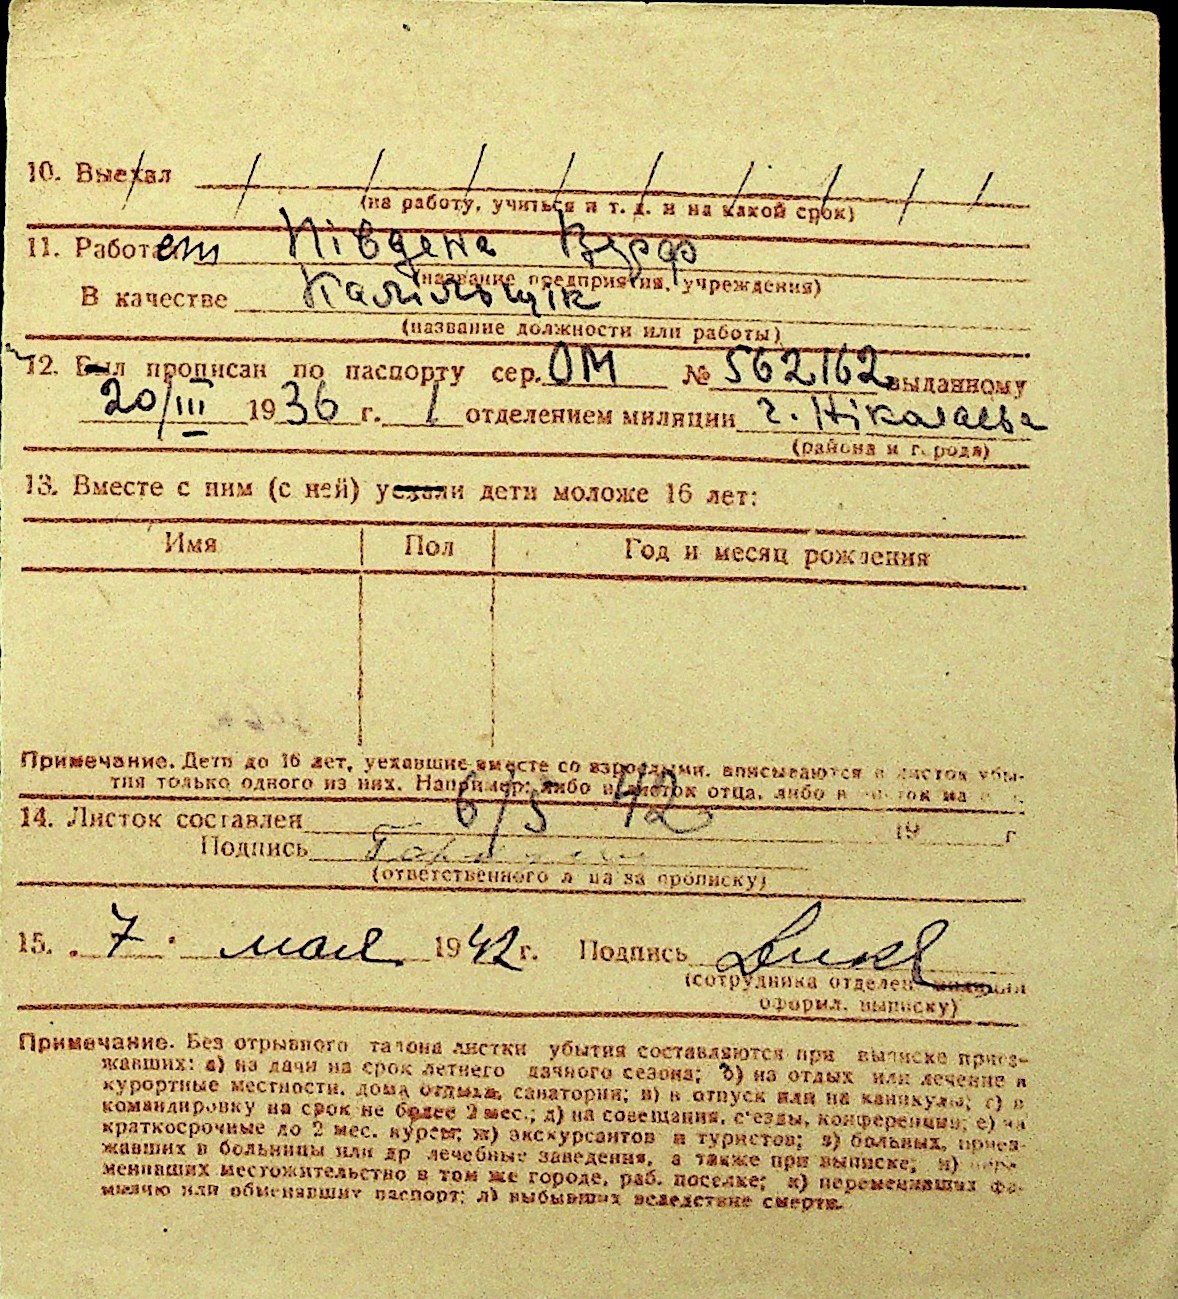 10. Выехал
(на работу, учиться и т. д. и на какой срок)
11. Работает Південа Верф
(название предприятия, учреждения)
В качестве
(название должности или работы)
12. Был прописан по паспорту сер. ОМ № 562162 выданному
20/III 1936 г. 1 отделением милиции г. Ніколаева
(района и города)
13. Вместе с ним (с ней) уехали дети моложе 16 лет:
Имя Пол Год и месяц рождения
Примечание. Дети до 16 лет, уехавшие вместе со взрослыми, вписываются в листок убы-
тия только одного из них. Например: либо в листок отца, либо в листок
14. Листок составлен 6/5 42 19 г
Подпись
(ответственного лица за прописку)
15. „ 7 " мая 1942 г. Подпись
(сотрудника отделен. милиции
оформ. выписку)
Примечание. Без отрывного талона листки убытия составляются при выписке приез-
жавших: а) на дачи на срок летнего дачного сезона; б) на отдых или лечение в
курортные местности, дома отдыха, санатории; в) в отпуск или на каникулы; г) в
командировку на срок не более 2 мес.; д) на совещания, с'езды, конференции; е) на
краткосрочные до 2 мес. курсы; ж) экскурсантов и туристов; з) больных, приез-
жавших в больницы или др лечебные заведения, а также при выписке; и) пере-
менивших местожительство в том же городе, раб. поселке; к) переменивших фа-
милию или обменявших паспорт; л) выбывших вследствие смерти.